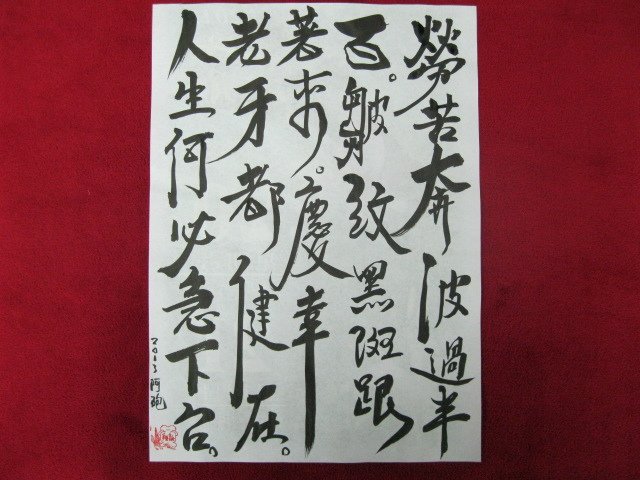 勞苦奔波過半
百。皺紋黑斑跟
著來。慶幸
老牙都健在。
人生何必急下台。
2013 阿砲